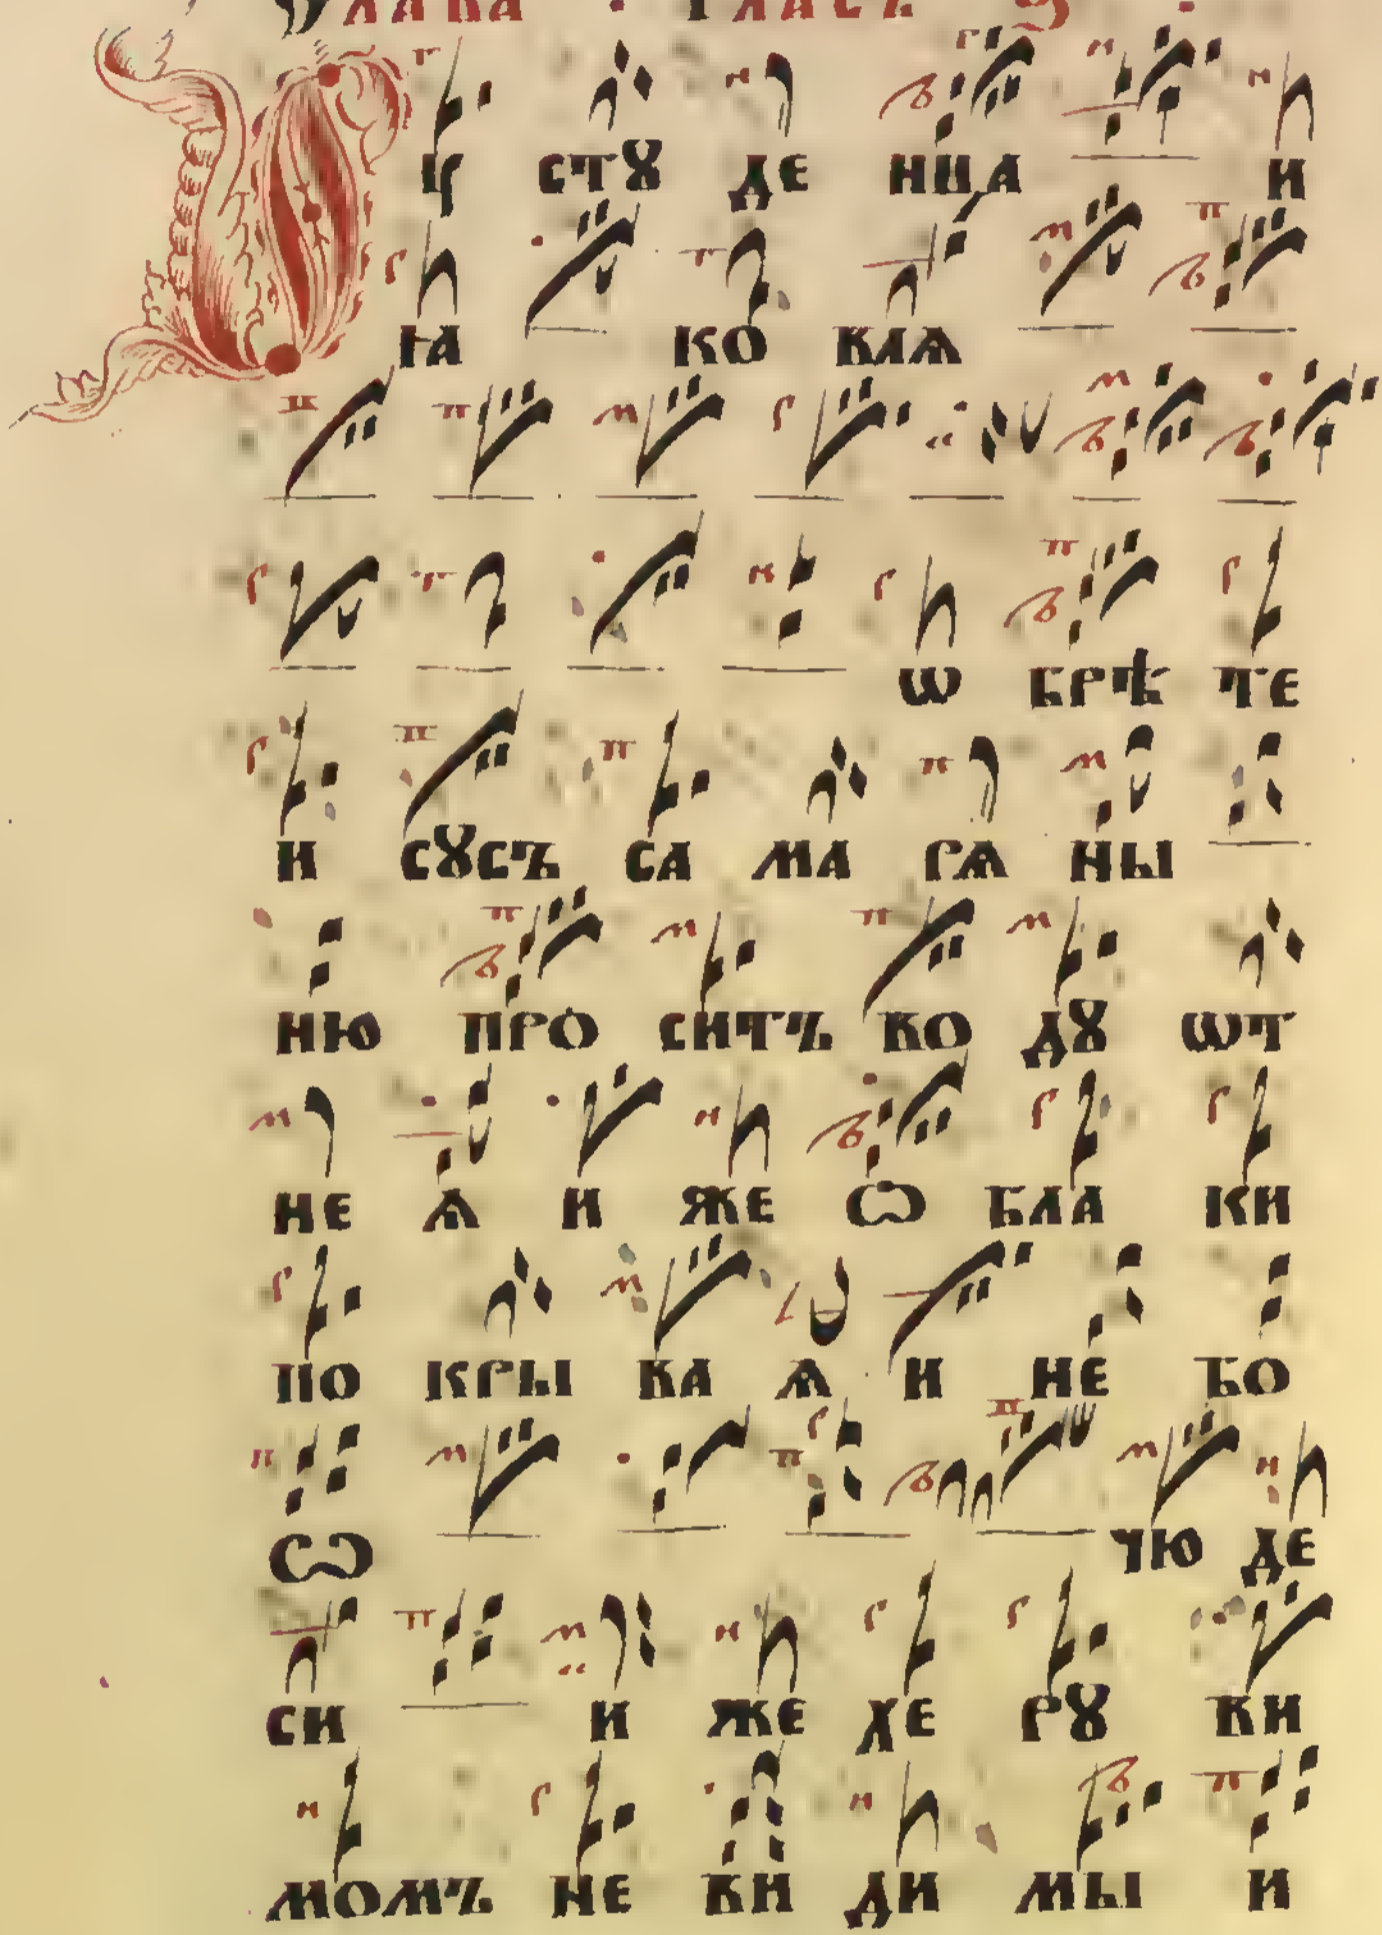 Слава · Гласъ
Ѹ стꙋ де нца и
ꙗ ко влѧ
ѡ брѣ те
и сꙋсъ са ма рѧ ны
ню про ситъ во дꙋ ѡт
не ѧ и же ѡ бла ки
по кры ва ѧ и не бо
ѡ чю де
си и же хе рꙋ ви
момъ не ви ди мы и